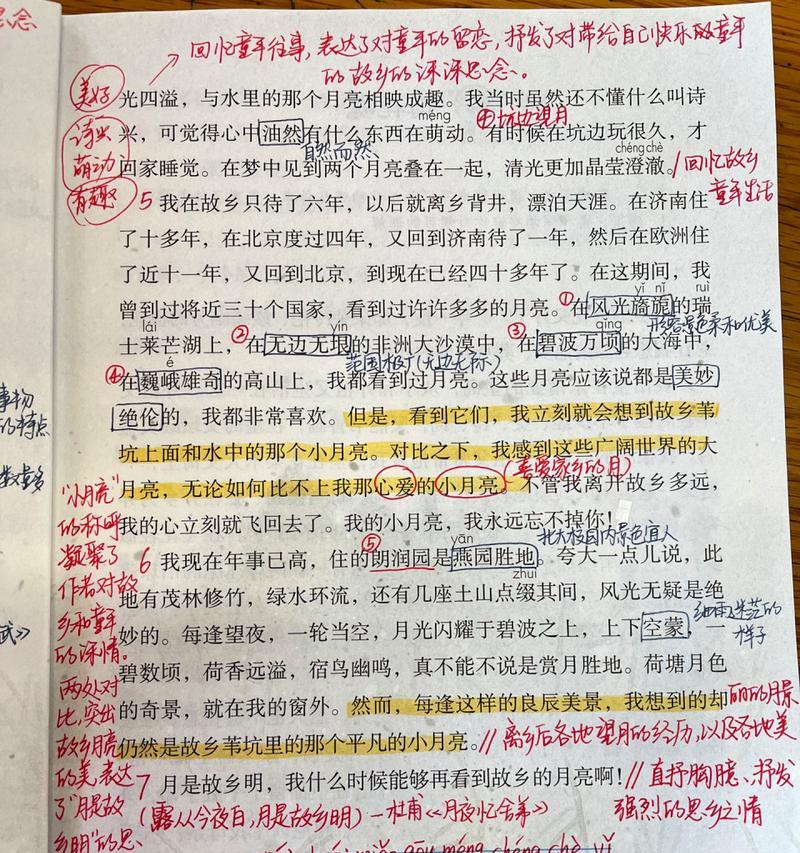 思念
回忆童年往事，表达了对童年的留恋，抒发了对带给自己快乐的童年
的故乡的深深思念。
美好
光四溢，与水里的那个月亮相映成趣。我当时虽然还不懂什么叫诗
méng
④坑边望月
诗兴
萌动
兴，可觉得心中油然有什么东西在萌动。有时候在坑边玩很久，才
自然而然
chéng chè
回家睡觉。在梦中见到两个月亮叠在一起，清光更加晶莹澄澈。
//回忆故乡
童年生活
有趣
5 我在故乡只待了六年，以后就离乡背井，漂泊天涯。在济南住
了十多年，在北京度过四年，又回到济南待了一年，然后在欧洲住
了近十一年，又回到北京，到现在已经四十多年了。在这期间，我
yǐ nǐ ruì
曾到过将近三十个国家，看到过许许多多的月亮。①在风光旖旎的瑞
形容景色柔和优美
lái yín qǐng
士莱芒湖上，②在无边无垠的非洲大沙漠中，③在碧波万顷的大海中，
范围极广(无边无际)
é
④在巍峨雄奇的高山上，我都看到过月亮。这些月亮应该说都是美妙
绝伦的，我都非常喜欢。但是，看到它们，我立刻就会想到故乡苇
坑上面和水中的那个小月亮。对比之下，我感到这些广阔世界的大
(喜爱家乡的月)
月亮，无论如何比不上我那心爱的小月亮。不管我离开故乡多远，
我的心立刻就飞回去了。我的小月亮，我永远忘不掉你！
yān
北大校园内景色宜人
6 我现在年事已高，住的⑤朗润园是燕园胜地。夸大一点儿说，此
zhuì
地有茂林修竹，绿水环流，还有几座土山点缀其间，风光无疑是绝
妙的。每逢望夜，一轮当空，月光闪耀于碧波之上，上下空蒙，一
样子
碧数顷，荷香远溢，宿鸟幽鸣，真不能不说是赏月胜地。荷塘月色
的奇景，就在我的窗外。然而，每逢这样的良辰美景，我想到的却
仍然是故乡苇坑里的那个平凡的小月亮。
//离乡后各地望月的经历，以及各地美
丽的月景
7 月是故乡明，我什么时候能够再看到故乡的月亮啊！
//直抒胸臆、抒发
强烈的思乡之情
(露从今夜白，月是故乡明)—杜甫《月夜忆舍弟》
"小月亮"
的称呼
凝聚了
作者对故
乡和童年
的深情。
两处对
比，突出
故乡月亮
的美，表达
了"月是故
乡明"的思
事物
的特点